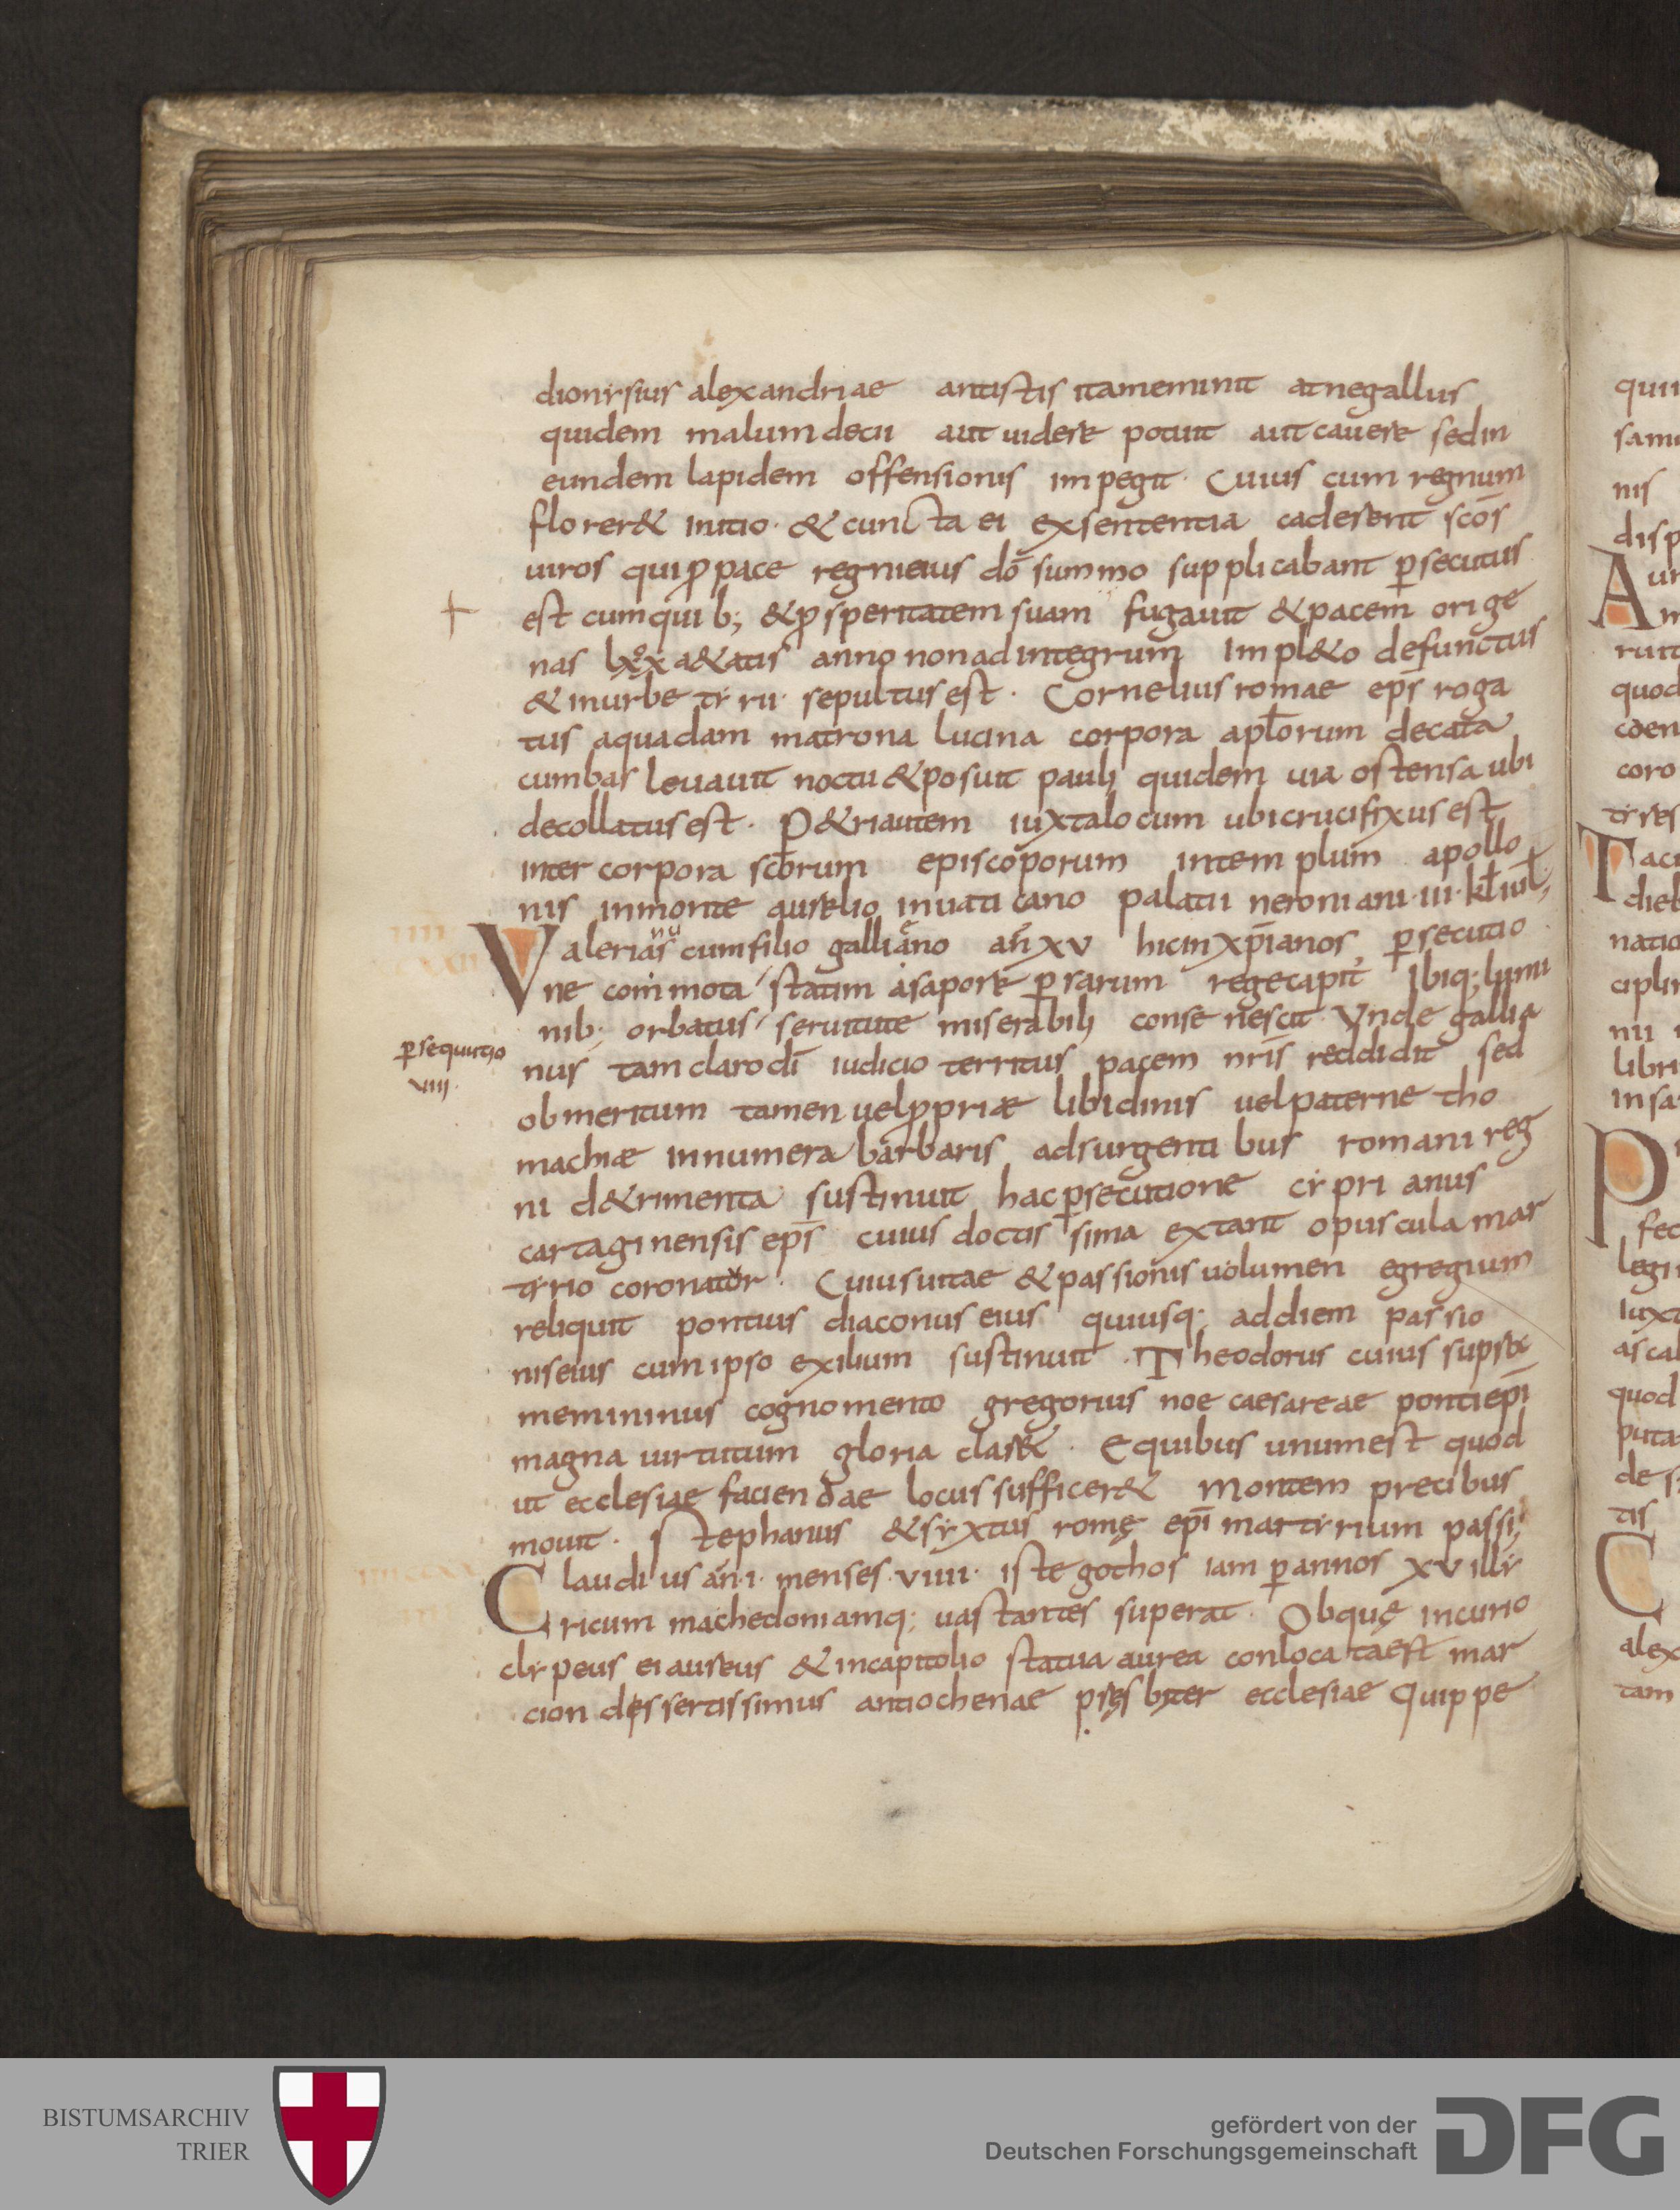 dionẏsius alexandriae antistis itameminit atnegallus
quidem malum decii aut uidere potuit aut cauere sed in
eundem lapidem offensionis impegit· Cuius cum regnum
florer& initio· & cuncta ei exsententia cederent sc̄os
uiros qui ꝓ pace regnieius dō summo supplicabant ꝑsecutus
est cumquib; &ꝓsperitatem suam fugauit &pacem orige
nas lxx a&atis anno nonadintegrum Impl&o defunctus
& inurbe tẏrii· sepultus est· Cornelius romae ep̄s roga
tus aquadam matrona lucina corpora apl̄orum decata
cumbas leuauit noctu &posuit pauli quidem uia ostensa ubi
decollatus est· P&riautem iuxtalocum ubicrucifixus est
inter corpora sc̄orum episcoporum intemplum apollo
nis inmonte aurelio inuaticano palatii neroniani·iii·kl̄ iul̄;
Valerianus cumfilio galliano an̄ xv hicinxp̄ianos ꝑsecutio
ne commota statim asapore ꝑsarum regecapit' Ibiq; lumi
nib; orbatus seruitute miserabili consenescit Vnde gallia
nus tam claro dī iudicio territus pacem nr̄is reddidit sed
ob meritum tamen uelꝓpriæ libidinis uelpaterne tho
machiæ innumera barbaris adsurgentibus romani reg
ni d&rimenta sustinuit hac ꝑsecutione cẏprianus
cartaginensis ep̄s cuius doctissima extant opuscula mar
tẏrio coronator· Cuiusuitae &passionis uolumen egregium
reliquit pontius diaconus eius quiusq; addiem passio
niseius cum ipso exilium sustinuit· Theodorus cuius
meminimus cognomento gregorius noe caesareae pontiep̄i
magna uirtutum gloria clar&· Equibus unumest quod
ut ecclesiae faciendae locus sufficer& montem precibus
mouit· Stephanus &sẏxtus romę ep̄i martẏrium passi;
Claudius an̄·i· menses·viiii· iste gothos iam ꝑannos xv illẏ
ricum machedoniamq; uastantes superat· Obquę incurio
clẏpeus eiaureus & incapitolio statua aurea conlocataest mar
cion dessertissimus antiochenae presbiter ecclesiae Quippe
ꝑsequutio
viii·
BISTUMSARCHIV
TRIER
gefördert von der
Deutschen Forschungsgemeinschaft
DFG